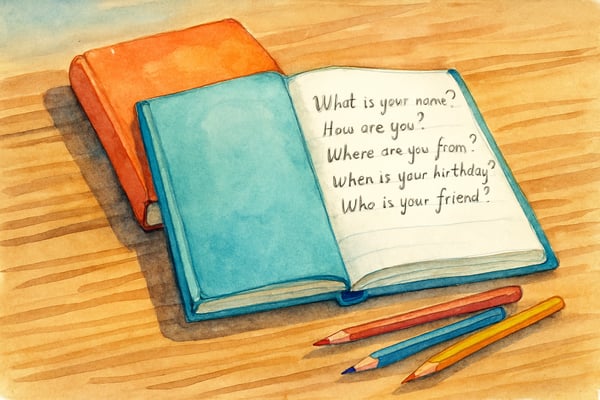 What is your name?
How are you?
Where are you from?
When is your hirthday?
Who is your friend?